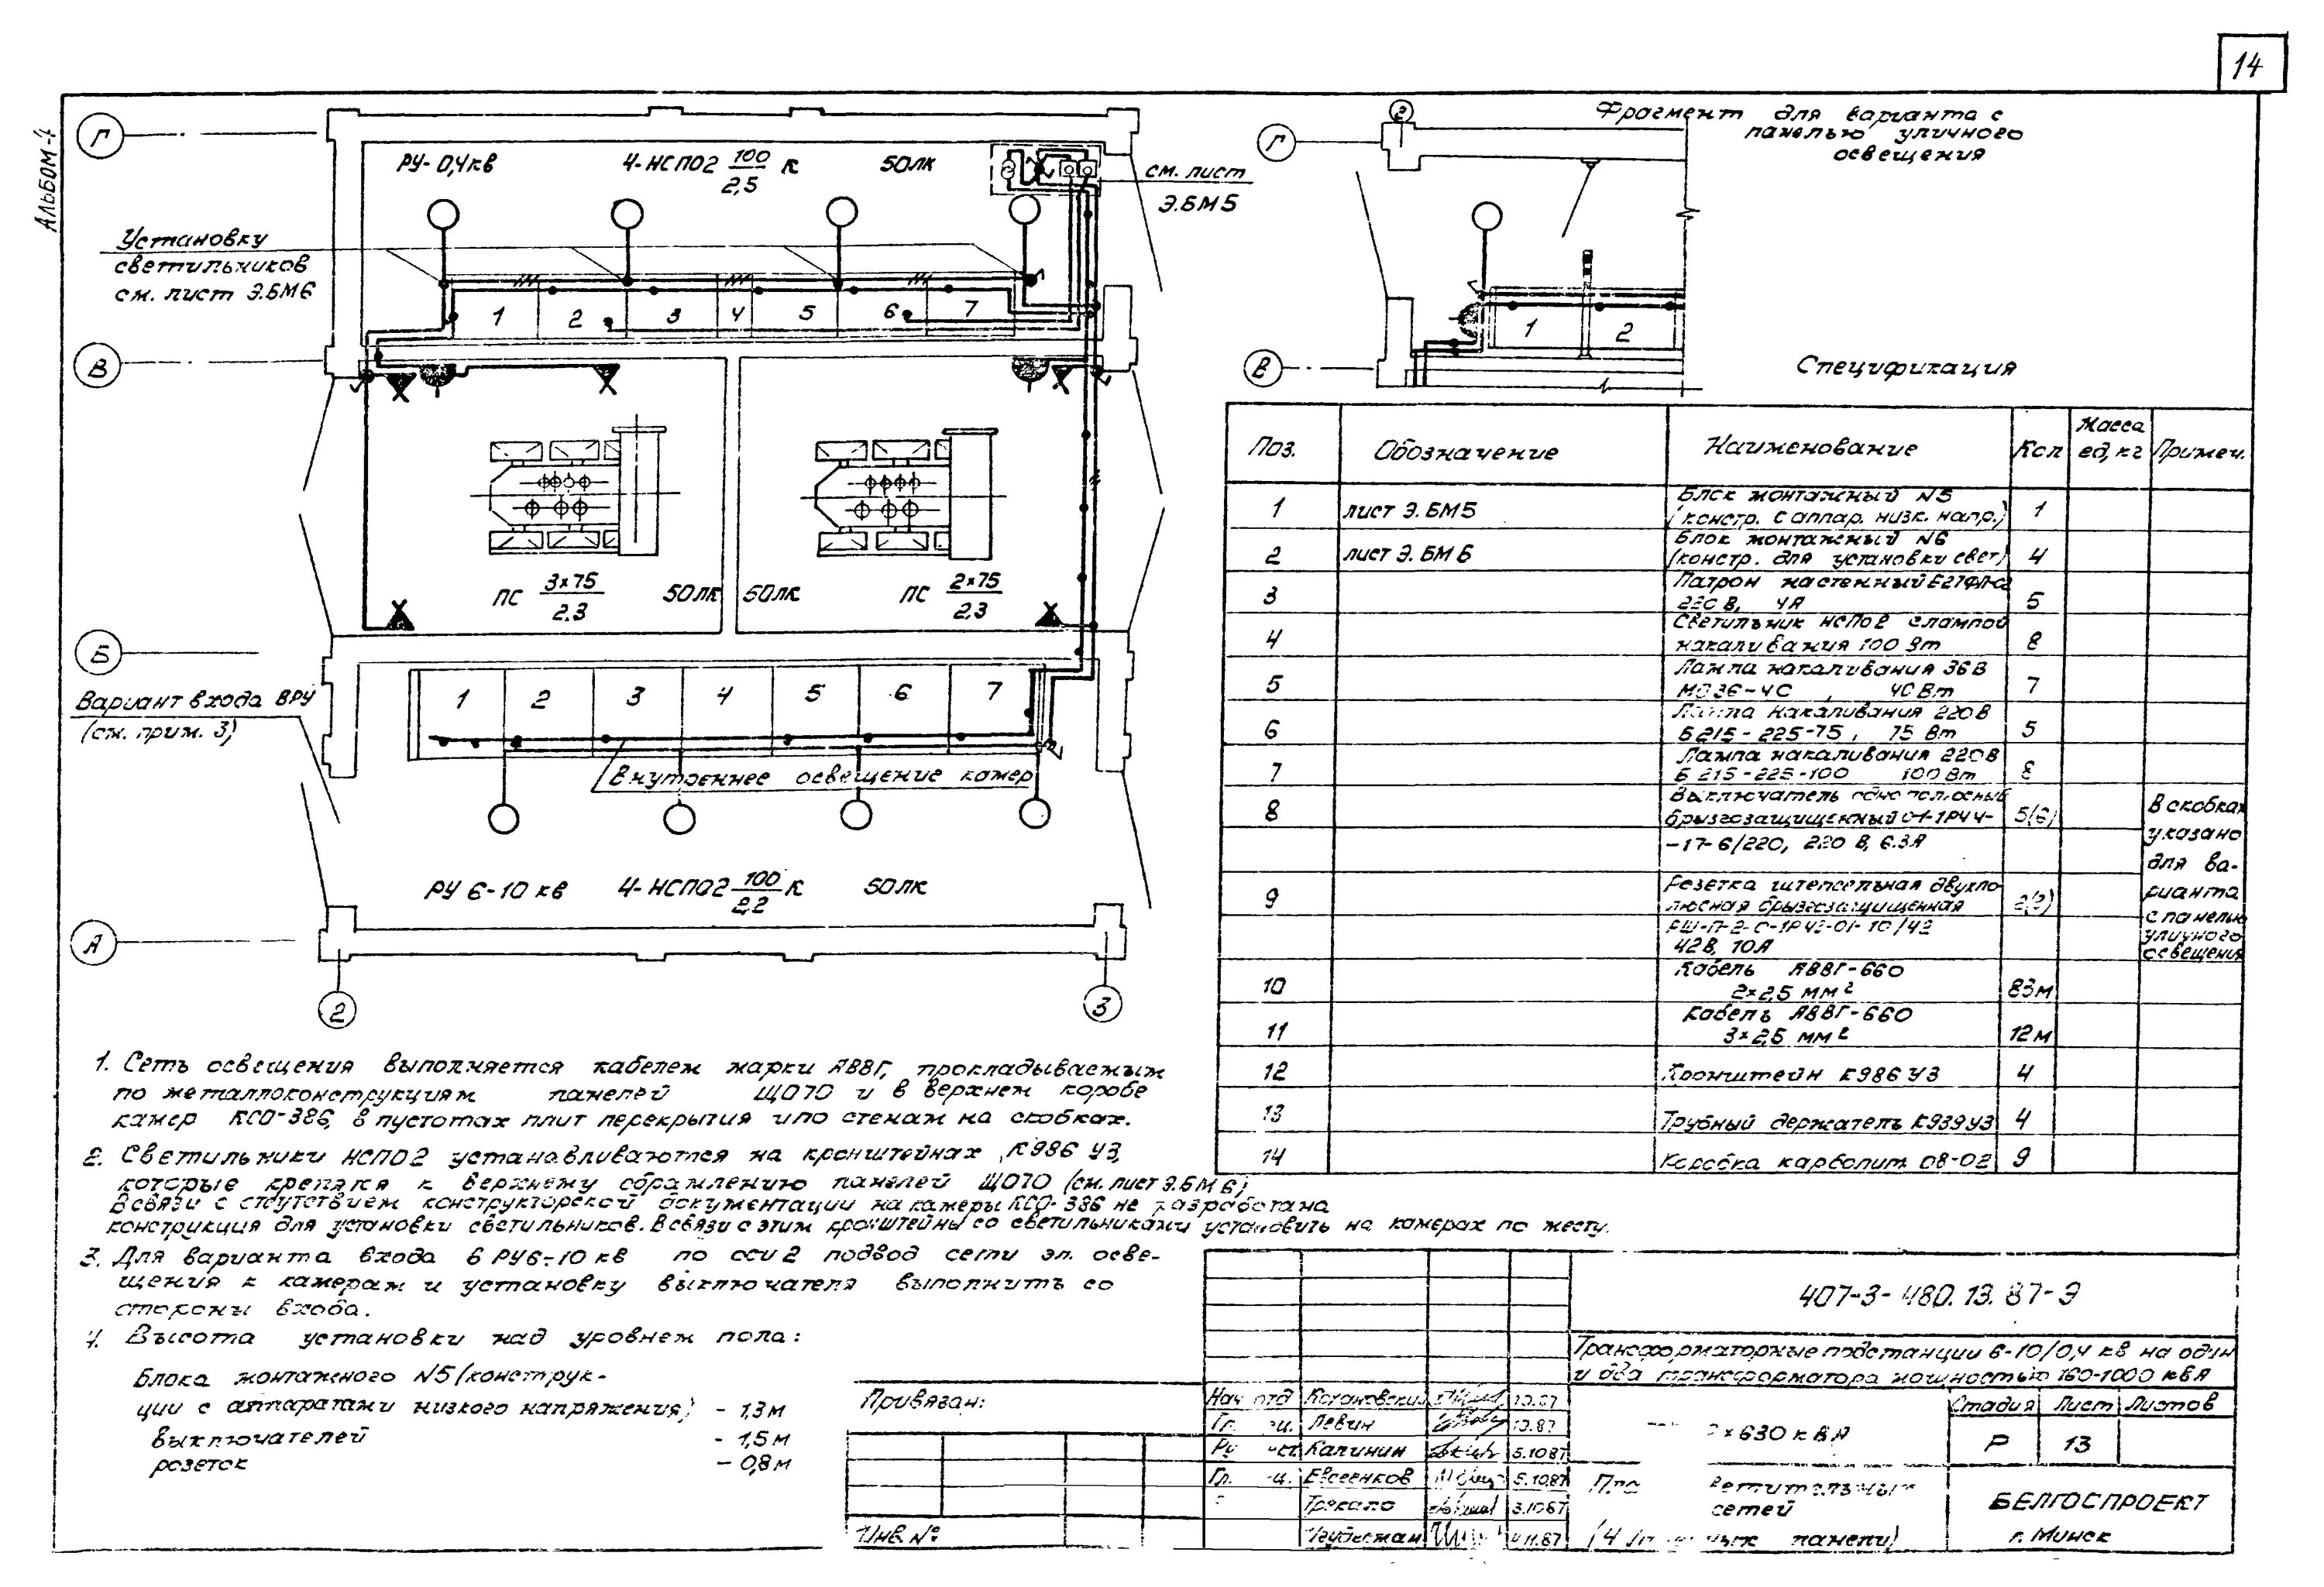 14
Альбом-4
Г
РУ-0,4кв
4-НСП02 100/2,5 К
50лк
см. лист
Э.БМ5
Установку
светильников
см. лист Э.БМ6
1 2 3 4 5 6 7
В
ПС 3×75/2,3
50лк
50лк
ПС 2×75/2,3
Б
Вариант входа в РУ
(см. прим. 3)
1 2 3 4 5 6 7
Внутреннее освещение камер
РУ 6-10 кв
4-НСП02 100/2,2 К
50лк
А
2
3
Фрагмент для варианта с
панелью уличного
освещения
2
Г
1 2
В
Спецификация
Поз. Обозначение Наименование Кол Масса ед, кг Примеч.
1 лист Э.БМ5 Блок монтажный N5 (констр. с аппар. низк. напр.) 1
2 лист Э.БМ6 Блок монтажный N6 (констр. для установки свет) 4
3 Патрон настенный 220 В, 4А 5
4 Светильник НСП02 с лампой накаливания 100 Вт 8
5 Лампа накаливания 36В МО36-40, 40 Вт 7
6 Лампа накаливания 220В Б215-225-75, 75 Вт 5
7 Лампа накаливания 220В Б215-225-100 100 Вт 8
8 Выключатель однополюсный брызгозащищенный 01-1Р44- 5(6)
-17-6/220, 220 В, 6.3А
В скобках
указано
для ва-
рианта
с панелью
уличного
освещения
9 Розетка штепсельная двухпо-
люсная брызгозащищенная 2(3)
РШ-П-2-0-1Р43-01-10/42
42В, 10А
10 Кабель АВВГ-660 2×2,5 мм² 83м
11 Кабель АВВГ-660 3×2,5 мм² 12м
12 Кронштейн К986 У3 4
13 Трубный держатель К939 У3 4
14 Коробка карболит. 08-02 9
1. Сеть освещения выполняется кабелем марки АВВГ, прокладываемым
по металлоконструкциям панелей ЩО70 и в верхнем коробе
камер КСО-386, в пустотах плит перекрытия и по стенам на скобках.
2. Светильники НСП02 устанавливаются на кронштейнах К986 У3,
которые крепятся к верхнему обрамлению панелей ЩО70 (см. лист Э.БМ6)
В связи с отсутствием конструкторской документации на камеры КСО-386 не разработана
конструкция для установки светильников. В связи с этим кронштейны со светильниками установить на камерах по месту.
3. Для варианта входа в РУ6-10 кв по оси 2 подвод сети эл. осве-
щения к камерам и установку выключателя выполнить со
стороны входа.
4. Высота установки над уровнем пола:
Блока монтажного N5 (конструк-
ции с аппаратами низкого напряжения) - 1,3м
выключателей - 1,5м
розеток - 0,8м
Привязан:
Инв. №
407-3-480.13.87-Э
Трансформаторные подстанции 6-10/0,4 кв на один
и два трансформатора мощностью 160-1000 кВА
Нач отд
Левин
Калинин 5.1087
Евсеенков 5.1087
×630 кВА
Стадия Лист Листов
Р 13
сетей
панели)
БЕЛГОСПРОЕКТ
г. Минск